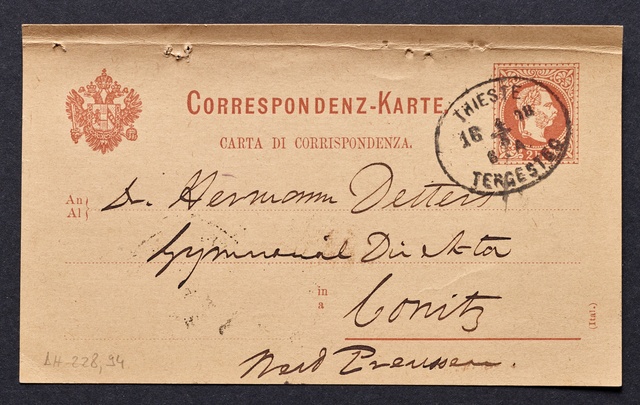 CORRESPONDENZ-KARTE.
CARTA DI CORRISPONDENZA.
TRIESTE
TERGESTEO
An
Al
Dr. Hermann Detters
Gymnasial Direktor
in
a
Conitz
(Ital.)
Nord Preussen.